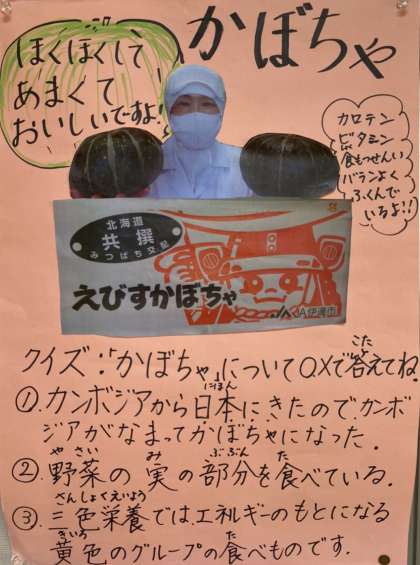 かぼちゃ
ほくほくして
あまくて
おいしいですよ!
カロテン
ビタミン
食もつせんい
バランスよく
ふくんで
いるよ!!
北海道
共撰
みつばち交配
えびすかぼちゃ
JA JA伊達市
クイズ:「かぼちゃ」について○×で答えてね
こた
①.カンボジアから日本にきたので、カンボ
にほん
ジアがなまってかぼちゃになった.
②.野菜の実の部分を食べている.
やさい み ぶぶん た
③.三色栄養では、エネルギーのもとになる
さんしょくえいよう
黄色のグループの食べものです.
きいろ た